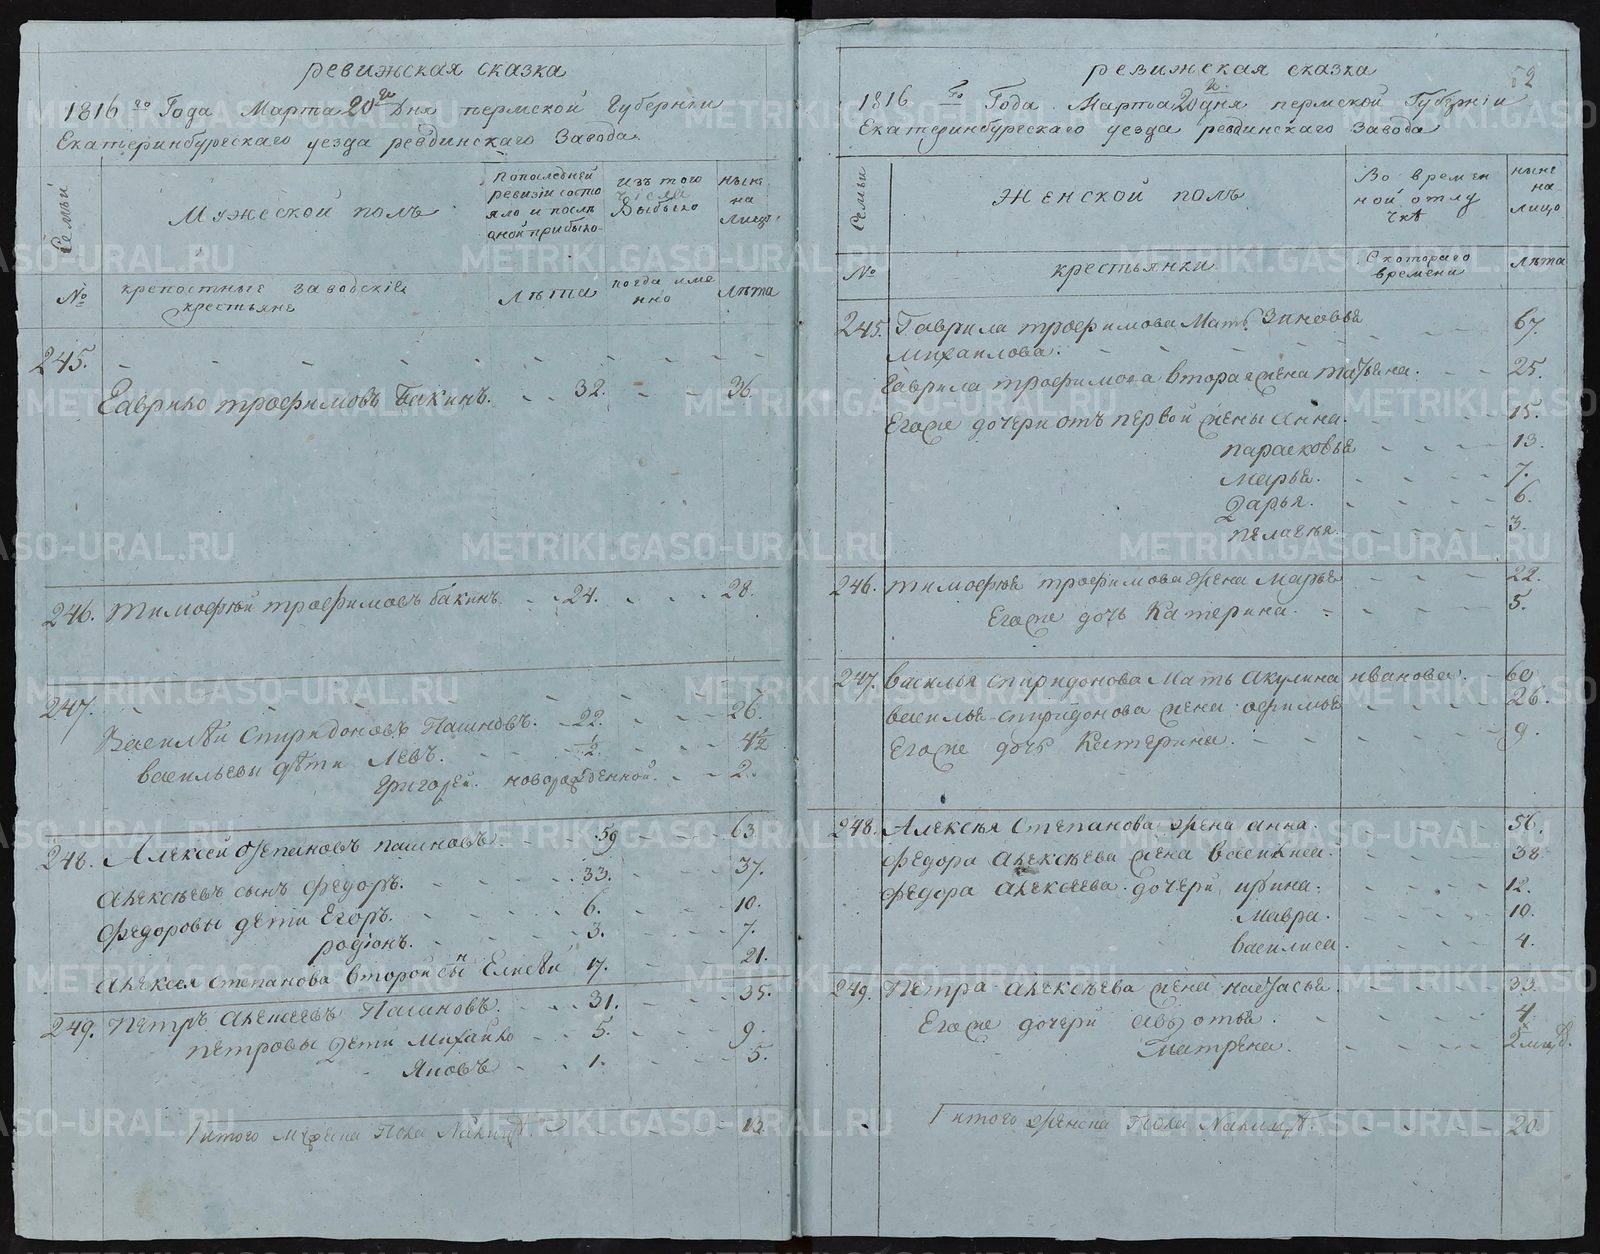 ревижская сказка
1816 го Года Марта 20 го Дня пермской Губерніи
Екатеринбурскаго уезда ревдинскаго Завода.
Семьи
Мужеской полъ
Попоследней
ревизіи состо
яло и посля
оной прибыло
изъ того
числа
Выбыло
ныне
на
Лицо
№
крепостные заводскіе
крестьяне
Лѣта
когда име
нно
Лѣта
245.
Гаврило трофимовъ Бакинъ. 32. 36.
246. тимофѣй трофимовъ бакинъ 24. 28.
247.
Василѣй Спиридоновъ Пашновъ. 22. 26.
васильевы дѣти Левъ. 1/2 4 1/2
Григорей. новорожденной. 2.
248. Алексей степановъ пашновъ. 59 63
Алексѣевъ сынъ Федоръ. 33. 37.
Федоровы дети Егоръ. 6. 10.
родіонъ. 3. 7.
Алексея степанова второй сынъ Елисѣй 17. 21.
249. Петръ Алексеевъ Пашновъ. 31. 35.
петровы Дети Михайло 5. 9.
Яковъ 1. 5.
итого мужеска Пола Налицѣ 13.
52
ревижская сказка
1816 го Года Марта 20 го дня пермской Губерніи
Екатеринбурскаго уезда ревдинскаго Завода
Семьи
Женской полъ
Во времен
ной отлу
чкѣ
ныне
на
лицо
№
крестьянки
Скотораго
времени
Лѣта
245. Гаврила трофимова Мать Зиновья 67.
михаилова.
Гаврила трофимова вторая жена татьяна. 25.
Егоже дочери отъ первой жены Анна. 15.
парасковья 13.
Марья. 7.
Дарья. 6.
пелагья. 3.
246. тимофѣя трофимова жена Марья 22.
Егоже дочь Катерина. 5.
247. василья спиридонова Мать Акулина иванова. 60
василья спиридонова жена офимья 26.
Егоже дочь Катерина. 9.
248. Алексѣя Степанова жена анна. 56.
федора Алексѣева жена василиса. 38
федора Алексеева дочери ирина. 12.
мавра. 10.
василиса. 4.
249. Петра Алексѣева жена настасья 33.
Егоже дочери Авдотья. 4
Матрена. 2 мца.
итого женска Пола Налицѣ. 20.
METRIKI.GASO-URAL.RU